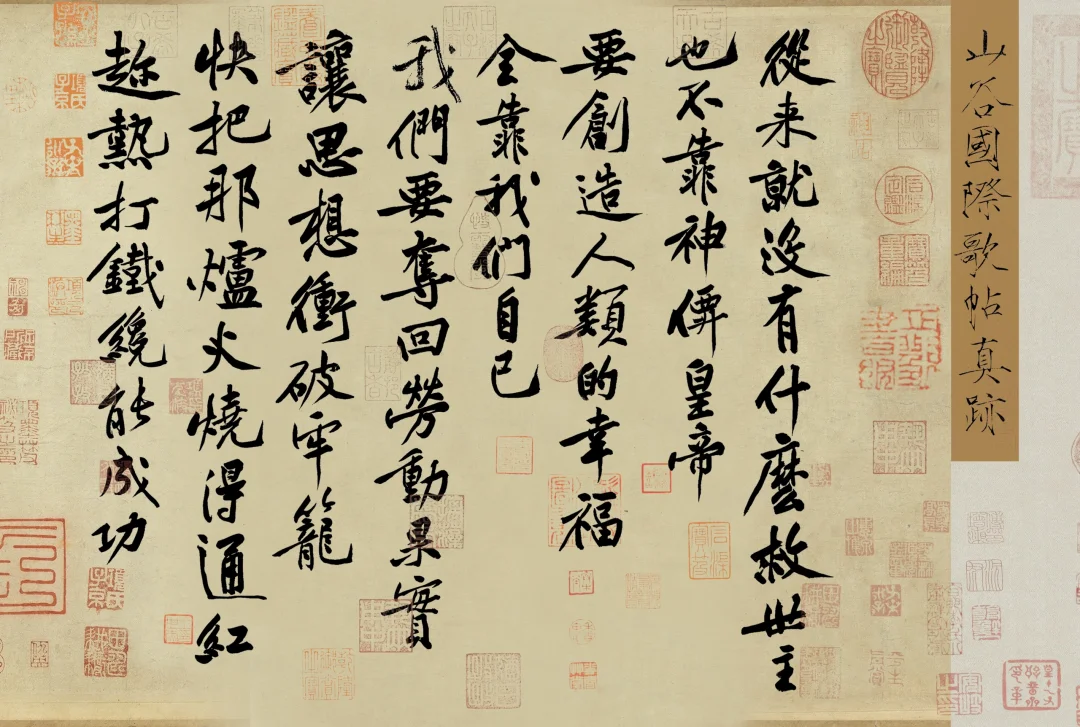 山谷國際歌帖真跡
從来就没有什麼救世主
也不靠神僊皇帝
要創造人類的幸福
全靠我们自己
我們要奪回勞動果實
讓思想衝破牢籠
快把那爐火燒得通紅
趁熱打鐵纔能成功